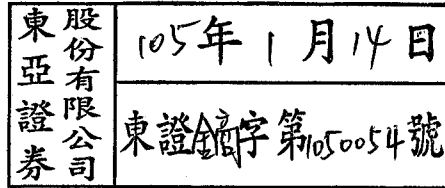 東亞證券
股份有限公司
105年1月14日
東證金商字第1050054號